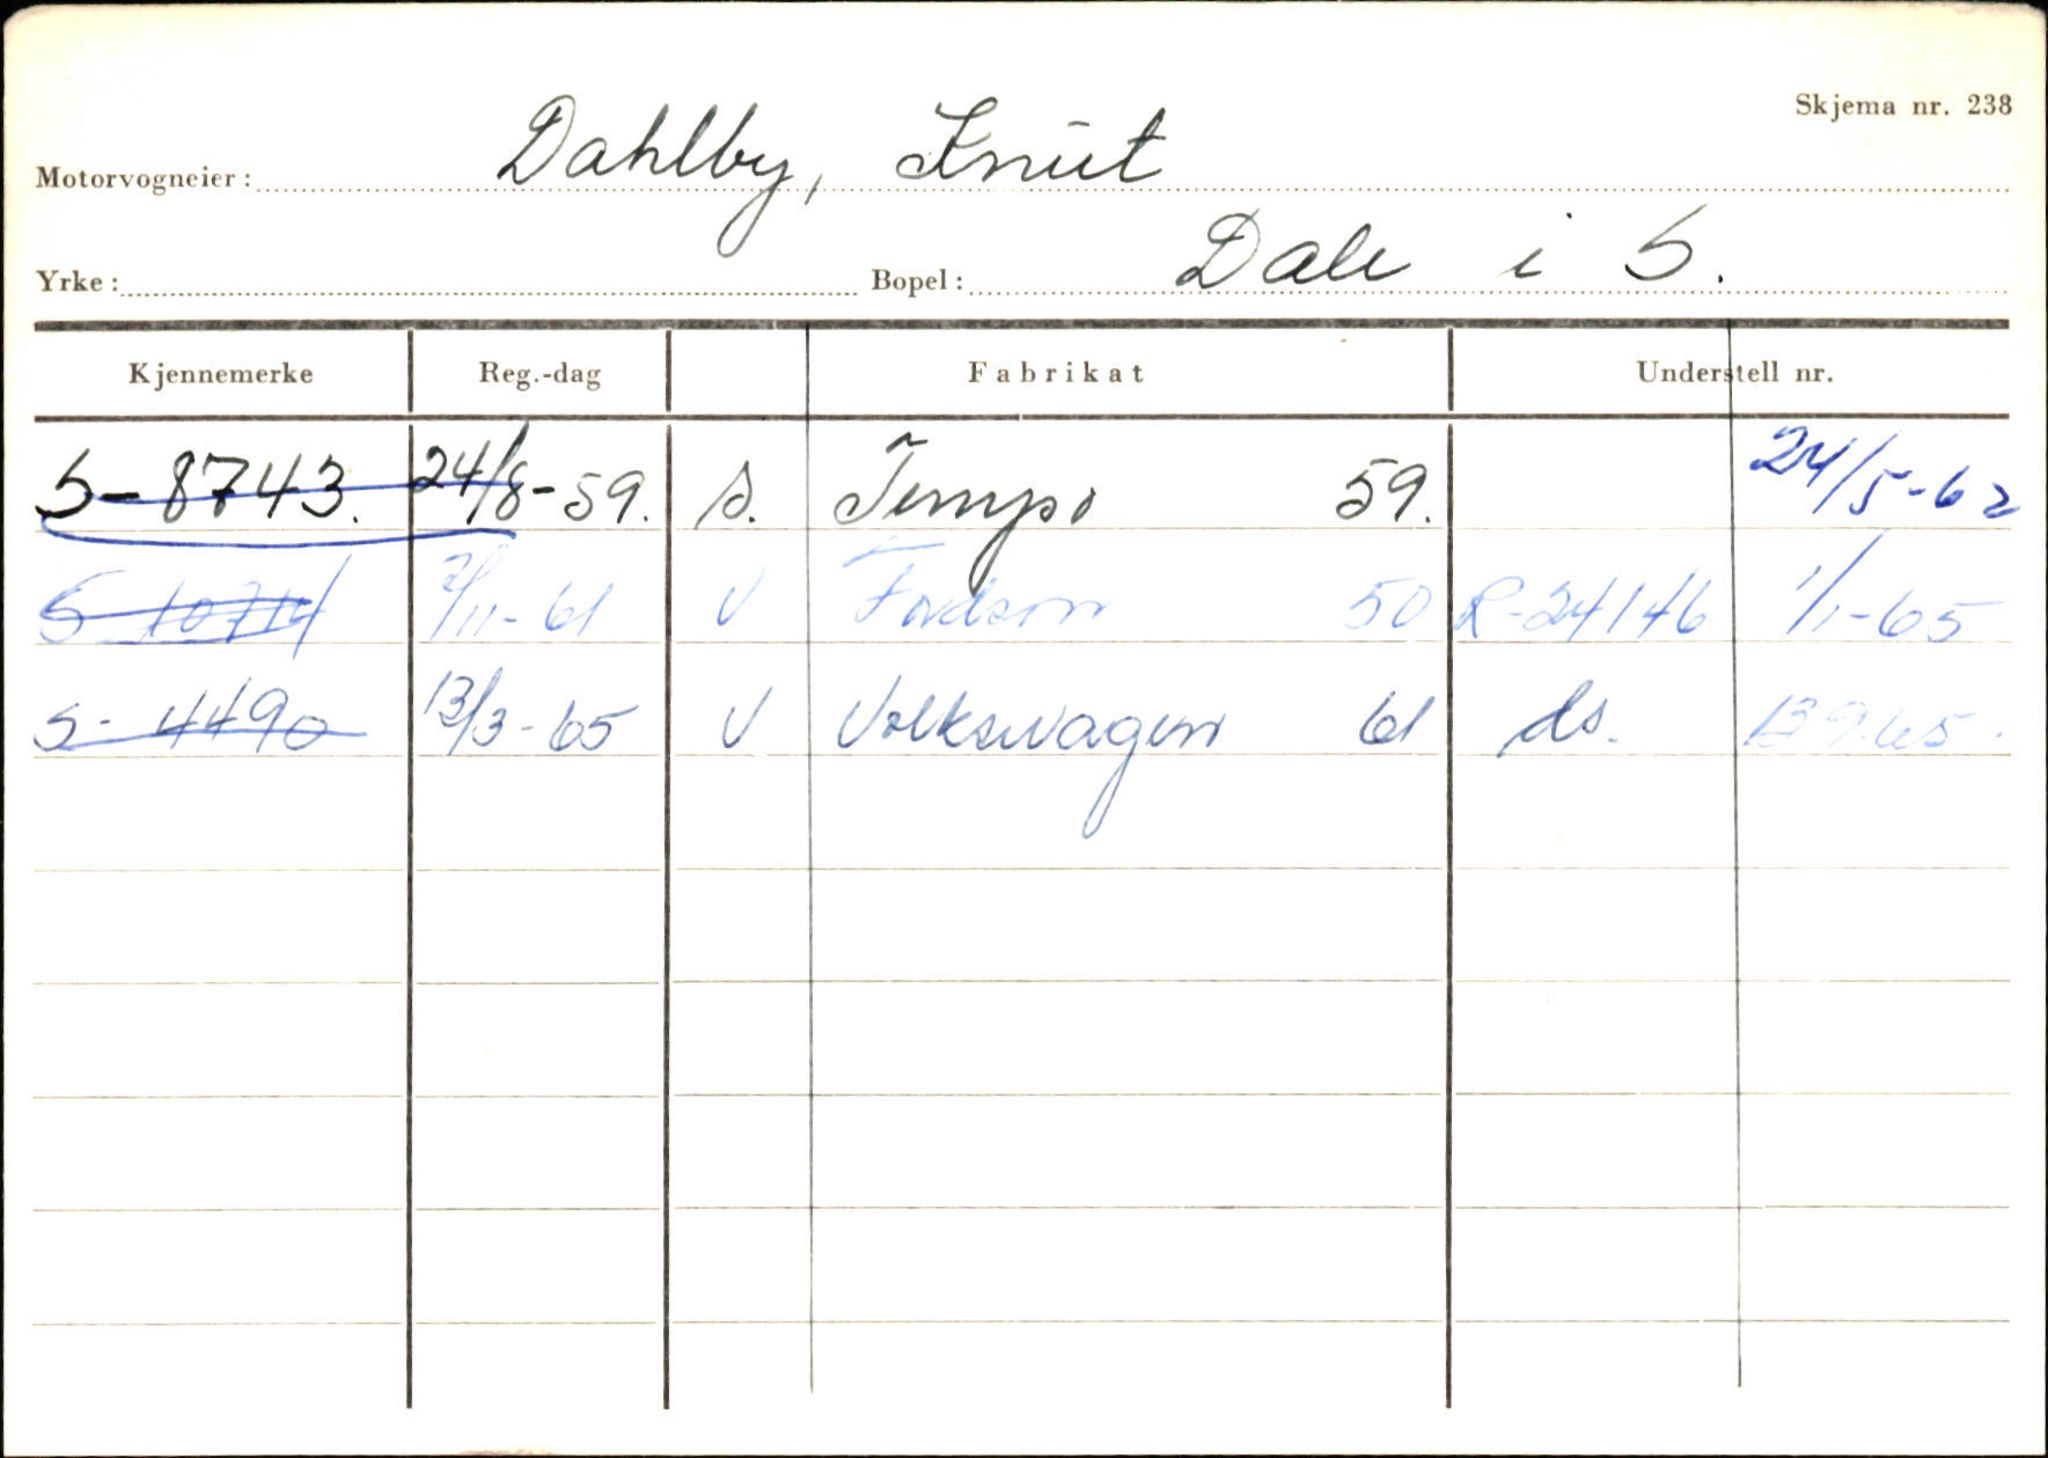 Skjema nr. 238
Motorvogneier: Dahlby, Knut
Yrke: Bopel: Dale i S.
Kjennemerke Reg.-dag Fabrikat Understell nr.
S-8743. 24/8-59. s. Tempo 59. 24/5-62
S 7/11-61 V Fordson 50 R-24146 1/1-65
S-4490 13/3-65 V Volkswagen 61 ds. 13 9.65.